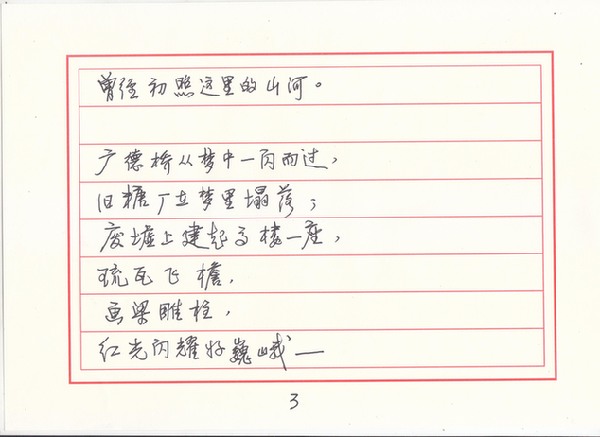 曾经初照这里的山河。
广德桥从梦中一闪而过，
旧糖厂在梦里塌落；
废墟上建起高楼一座，
琉瓦飞檐，
画梁雕柱，
红光闪耀好巍峨——
3